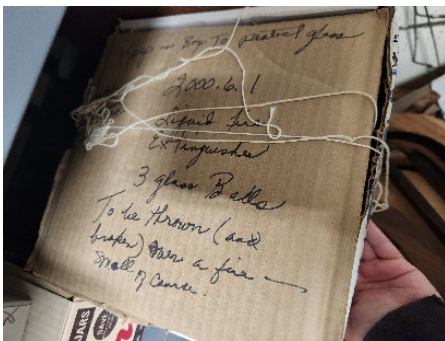 in Box To protect glass
2000.6.1
Liquid fire
extinguisher
3 glass Balls
To be thrown (and
broken) over a fire —
small of course.
JARS
SAVE